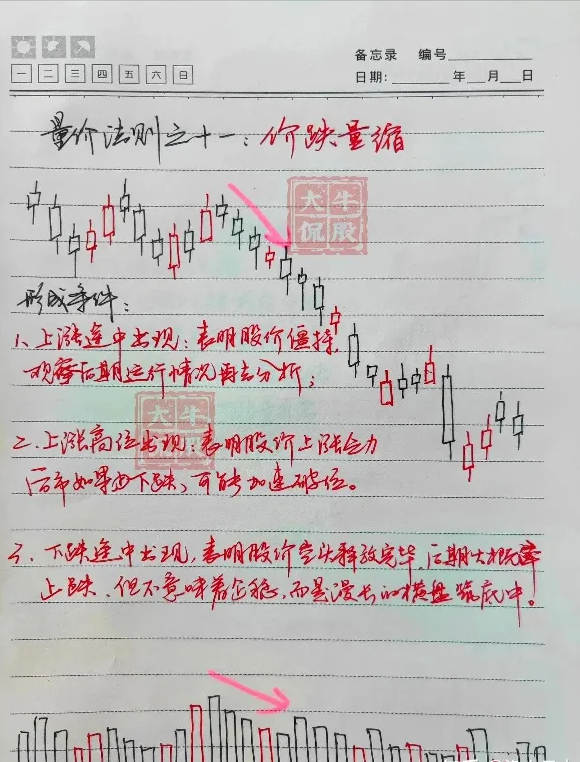 备忘录 编号
一 二 三 四 五 六 日
日期： 年 月 日
量价法则之十一：价跌量缩
大牛
侃股
形成条件：
1、上涨途中出现：表明股价僵持,
观察后期运行情况再去分析；
大牛
侃股
二.上涨高位出现：表明股价上涨乏力
后市如果由下跌，可能加速破位。
三、下跌途中出现，表明股价空头释放完毕 后期大概率
止跌，但不意味着企稳，而是漫长的横盘筑底中！